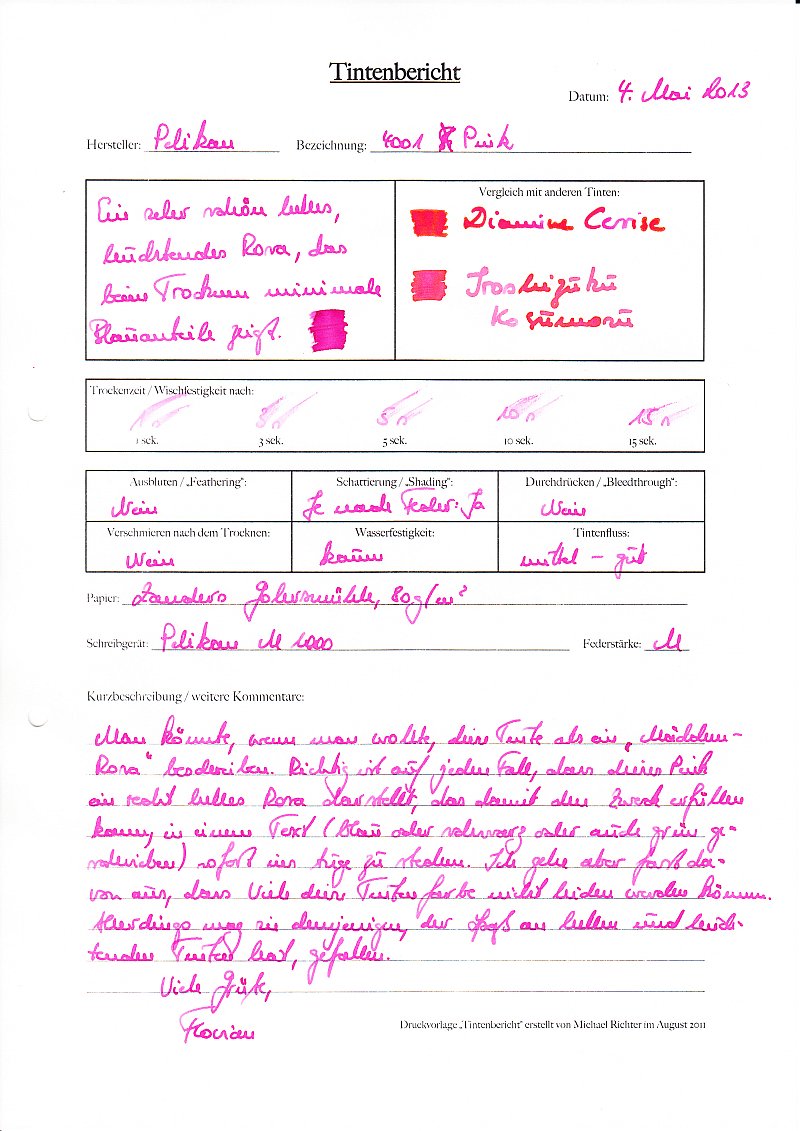 Tintenbericht
Datum: 4. Mai 2013
Hersteller: Pelikan Bezeichnung: 4001 Pink
Ein sehr schön helles,
leuchtendes Rosa, das
beim Trocknen minimale
Blauanteile zeigt.
Vergleich mit anderen Tinten:
Diamine Cerise
Iroshizuku
Kosumosu
Trockenzeit / Wischfestigkeit nach:
1 5 10 15
1 sek. 3 sek. 5 sek. 10 sek. 15 sek.
Ausbluten / „Feathering": Schattierung / „Shading": Durchdrücken / „Bleedthrough":
Nein Je nach Feder: Ja Nein
Verschmieren nach dem Trocknen: Wasserfestigkeit: Tintenfluss:
Nein kaum mittel – gut
Papier: Zanders Gohrsmühle, 80g/m²
Schreibgerät: Pelikan M 1000 Federstärke: M
Kurzbeschreibung / weitere Kommentare:
Man könnte, wenn man wollte, diese Tinte als ein „Mädchen-
Rosa" beschreiben. Richtig ist auf jeden Fall, dass dieses Pink
ein recht helles Rosa darstellt, das damit den Zweck erfüllen
kann, in einem Text (blau oder schwarz oder auch grün ge-
schrieben) sofort ins Auge zu stechen. Ich gehe aber fast da-
von aus, dass Viele diese Tintenfarbe nicht leiden werden können.
Allerdings mag sie demjenigen, der Spaß an hellen und leuch-
tenden Tinten hat, gefallen.
Viele Grüße,
Florian
Druckvorlage „Tintenbericht" erstellt von Michael Richter im August 2011